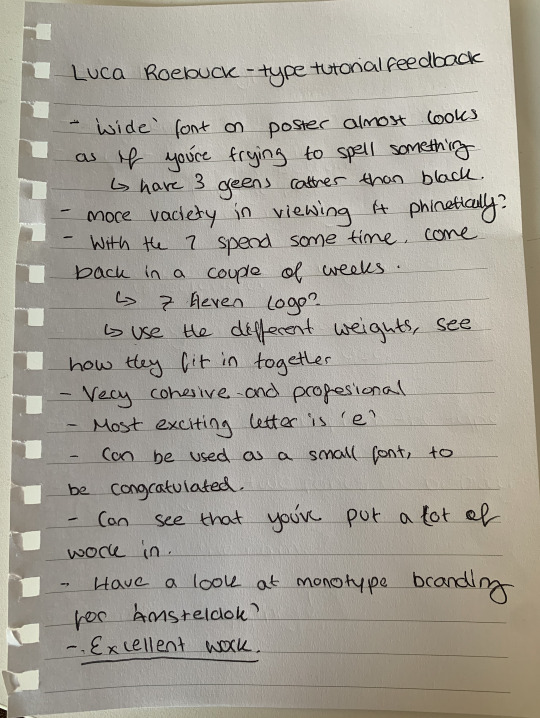 Luca Roebuck - type tutorial feedback
- 'wide' font on poster almost looks
as if you're trying to spell something
↳ have 3 greens rather than black.
- more variety in viewing it phinetically?
- With the 7 spend some time, come
back in a couple of weeks.
↳ 7 Eleven Logo?
↳ use the different weights, see
how they fit in together
- Very cohesive and profesional
- Most exciting letter is 'e'
- Can be used as a small font, to
be congratulated.
- Can see that you've put a lot of
work in.
- Have a look at monotype branding
for Amsteldok?
- Excellent work.